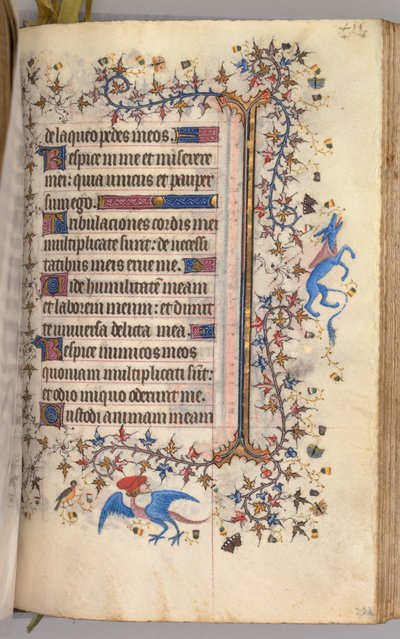 de laqueo pedes meos.
Respice in me et miserere
mei: quia unicus et pauper
sum ego.
Tribulaciones cordis mei
multiplicate sunt: de necessi
tatibus meis erue me.
Uide humilitatē meam
et laborem meum: et dimit
te universa delicta mea.
Respice inimicos meos
quoniam multiplicati sūt:
et odio iniquo oderunt me.
Custodi animam meam